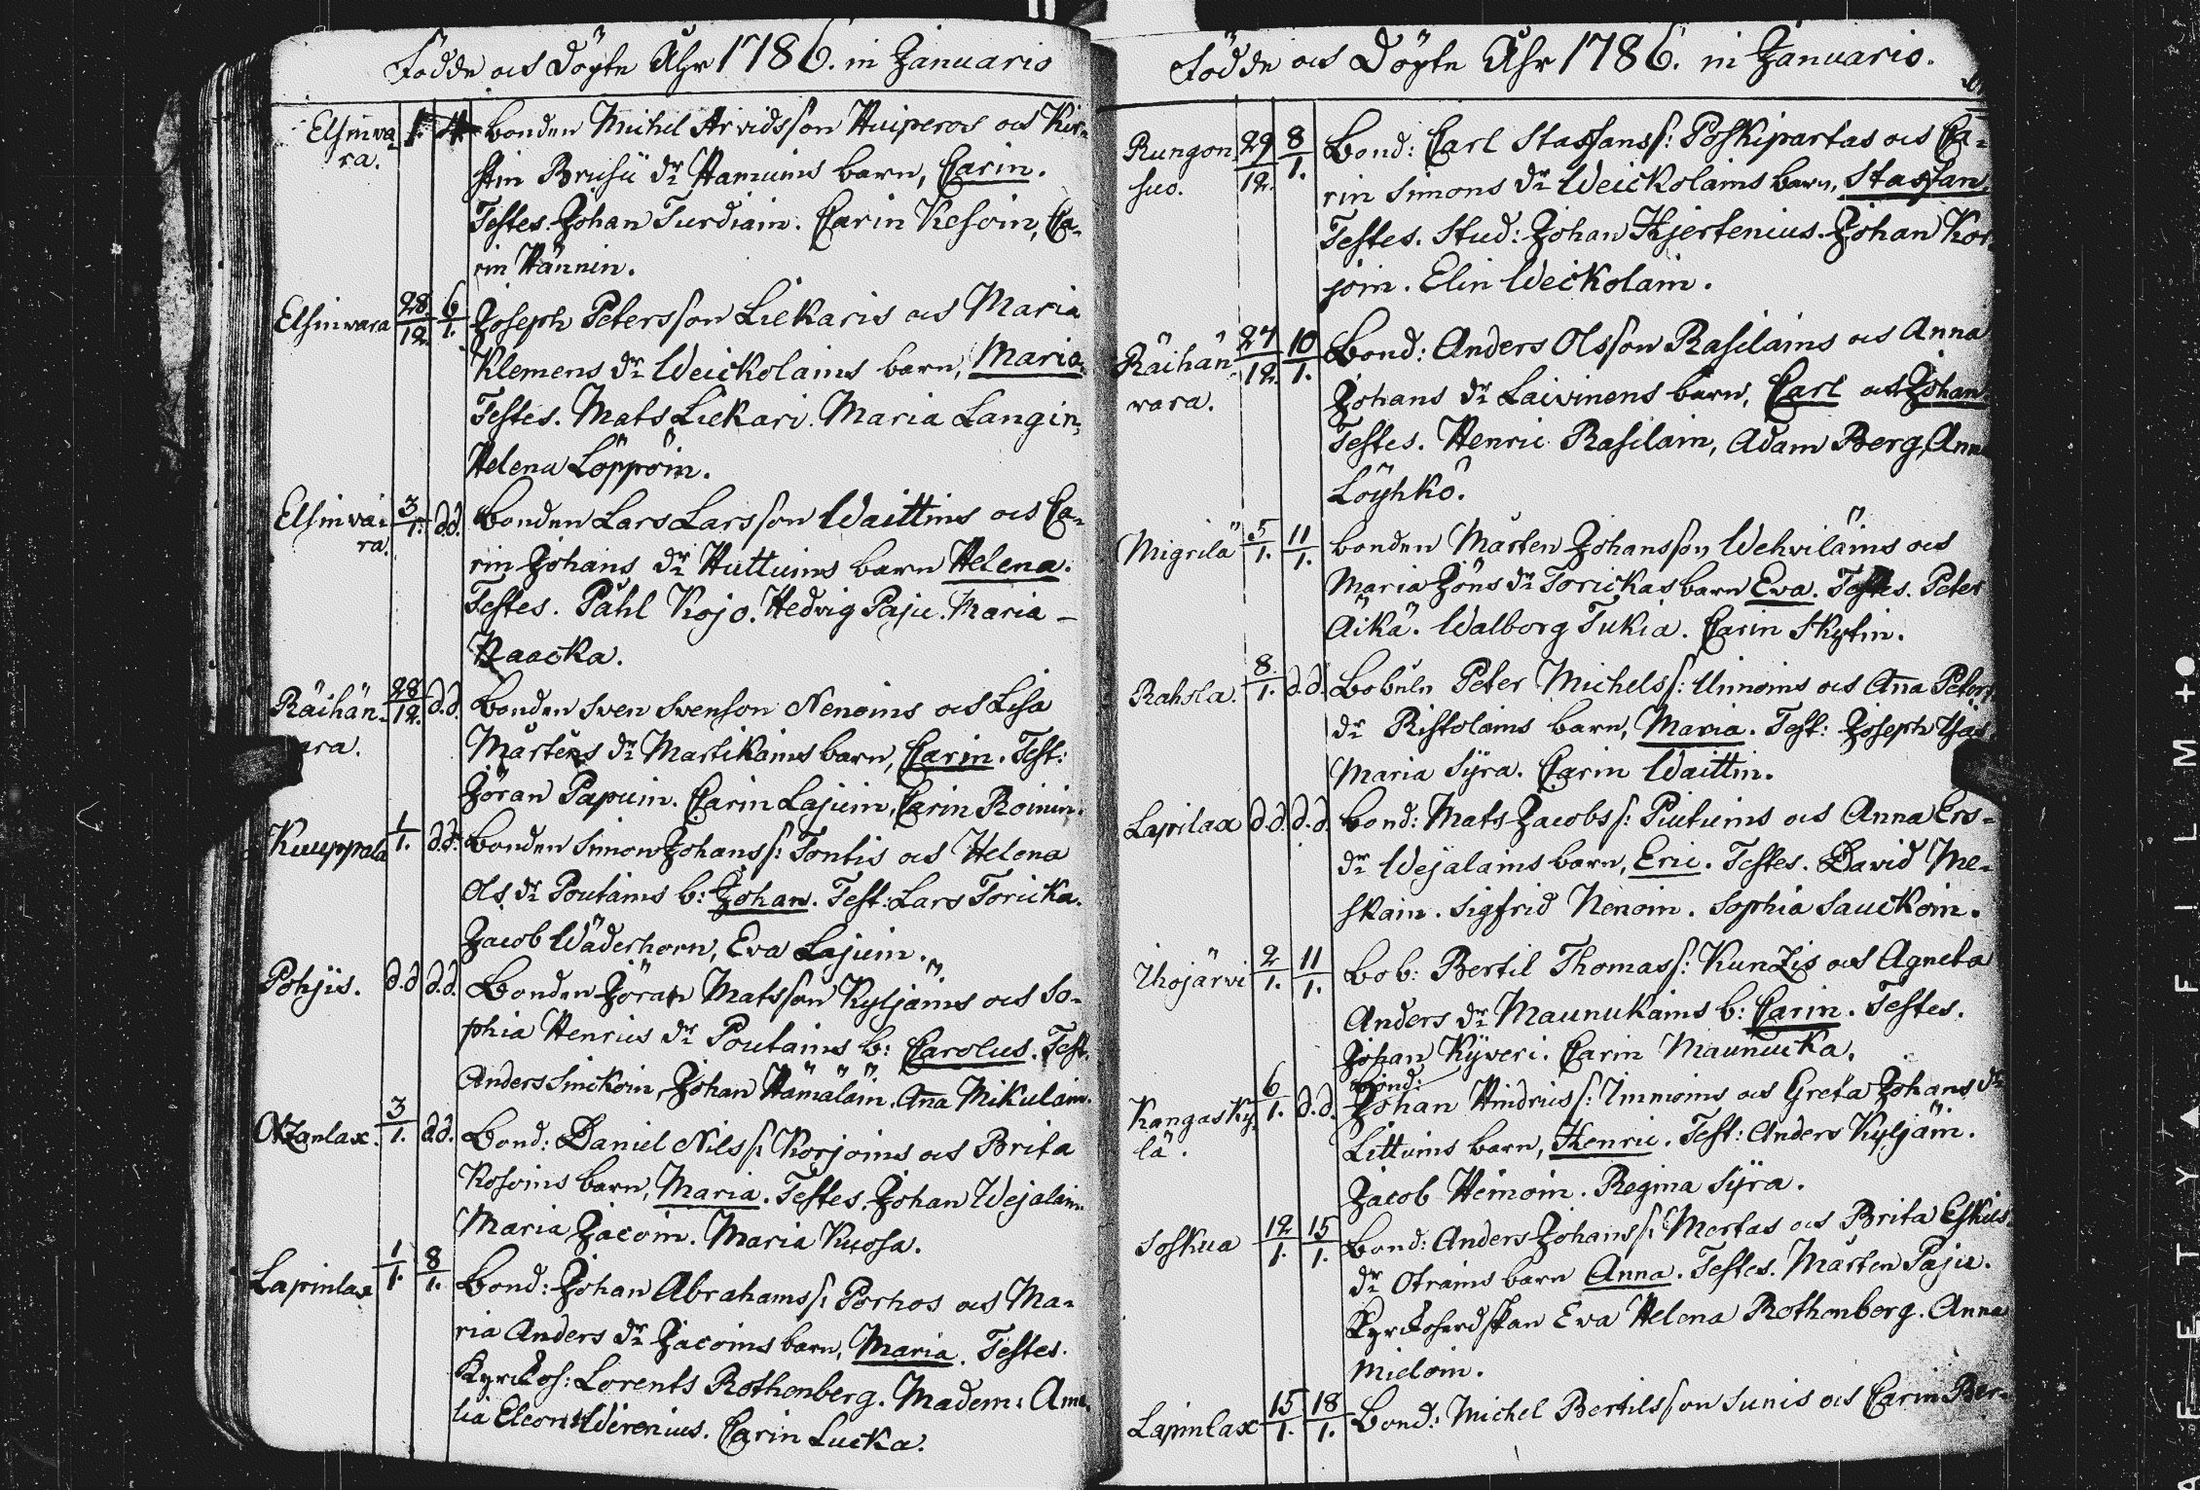 Födde och Döpte Åhr 1786. in Januario
Elsinva- 1. 4 bonden Michel Arvidsson Huiperos och Kir-
ra. stin Brusii dr Hamuins barn, Carin.
Testes. Johan Turdiain. Carin Kesoin, Ca-
rin Hännin.
Elsinvara 28/12. 6/1. Joseph Petersson Liekaris och Maria
Klemens dr Weickolains barn, Maria.
Testes. Mats Liekari. Maria Langin,
Helena Löppöin.
Elsinva- 3/1. d.d. bonden Lars Larsson Waittins och Ca-
ra. rin Johans dr Huttuins barn Helena.
Testes. Påhl Kojo. Hedvig Paju. Maria –
Raacka.
Räihän- 28/12. d.d. bonden Sven Svenson Nenoins och Lisa
ara. Mårtens dr Martikains barn, Carin. Test:
Jöran Papuin. Carin Lajuin, Carin Roinin.
Kuuppala 1/1. d.d. bonden Simon Johans s: Tontis och Helena
Ols dr Poutains b: Johan. Test: Lars Toricka.
Jacob Wäderhorn, Eva Lajuin.
Pohjis. d.d d.d. Bonden Jöran Matsson Kyljäins och So-
phia Henrics dr Poutains b: Carolus. Test.
Anders Sinckoin, Johan Hämäläin. Aña Mikulain.
Okzanlax. 3/1. d.d. Bond: Daniel Nils s: Korjoins och Brita
Kosoins barn, Maria. Testes. Johan Wejalain.
Maria Jacoin. Maria Kuosa.
Lapinlax 1/1. 8/1. Bond: Johan Abrahams s: Porhos och Ma-
ria Anders dr Jacoins barn, Maria. Testes.
Kyrckoh: Lorents Rothenberg. Madem: Ame-
lia Eleon: Wirenius. Carin Lucka.
Födde och Döpte Åhr 1786. in Januario.
Rungon 29/12. 8/1. Bond: Carl Staffans s: Poskipartas och Ca-
suo. rin Simons dr Weickolains barn, Staffan
Testes. Stud: Johan Hjertenius. Johan Kor-
join. Elin Weckolain.
Räihän 27/12. 10/1. Bond: Anders Olsson Rasilains och Anna
vara. Johans dr Laivinens barn, Carl och Johan.
Testes. Henric Rasilain, Adam Berg, Ann
Löyhkö.
Migrilä 5/1. 11/1. bonden Mårten Johansson Wehviläins och
Maria Jöns dr Torickas barn Eva. Testes. Peter
Äikä. Walborg Tukia. Carin Skytin.
Rahola. 8/1. d.d. Bobuln Peter Michels s: Unnoins och Aña Peters
dr Ristolains barn, Maria. Test: Joseph
Maria Syra. Carin Waittin.
Lapilax d.d. d.d. Bond: Mats Jacobs s: Piutuins och Anna Ers-
dr Wejalains barn, Eric. Testes. David Me-
skain. Sigfrid Nenoin. Sophia Sauckoin.
Ihojärvi 2/1. 11/1. Bob: Bertil Thomas s: Kunzis och Agneta
Anders dr Maunukains b: Carin. Testes.
Johan Kyveri. Carin Maunucka.
Bond:
Kangasky- 6/1. d.d. Johan Hindrics s: Immoins och Greta Johans dr
lä. Littuins barn, Henric. Test: Anders Kyljäin.
Jacob Heinoin. Regina Syra.
Soskua 12/1. 15/1. Bond: Anders Johans s: Mertas och Brita Eskils
dr Otrains barn Anna. Testes. Mårten Paju.
Kyrckoherdskan Eva Helena Rothenberg. Anna
Mieloin.
Lapinlax 15/1. 18/1. Bond: Michel Bertilsson Sunis och Carin Ber-
FILM
AETY